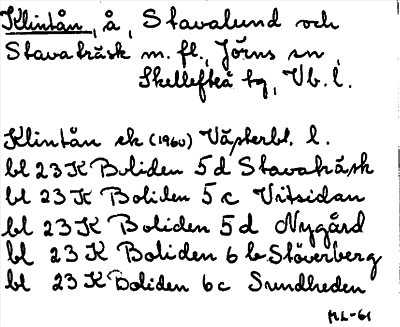 Klintån, å, Stavalund och
Stavaträsk m. fl., Jörns sn,
Skellefteå tg, Vb. l.
Klintån ek (1960) Västerbl. l.
bl 23 K Boliden 5 d Stavaträsk
bl 23 K Boliden 5 c Vitsidan
bl 23 K Boliden 5 d Nygård
bl 23 K Boliden 6 b Stöverberg
bl 23 K Boliden 6 c Sundheden